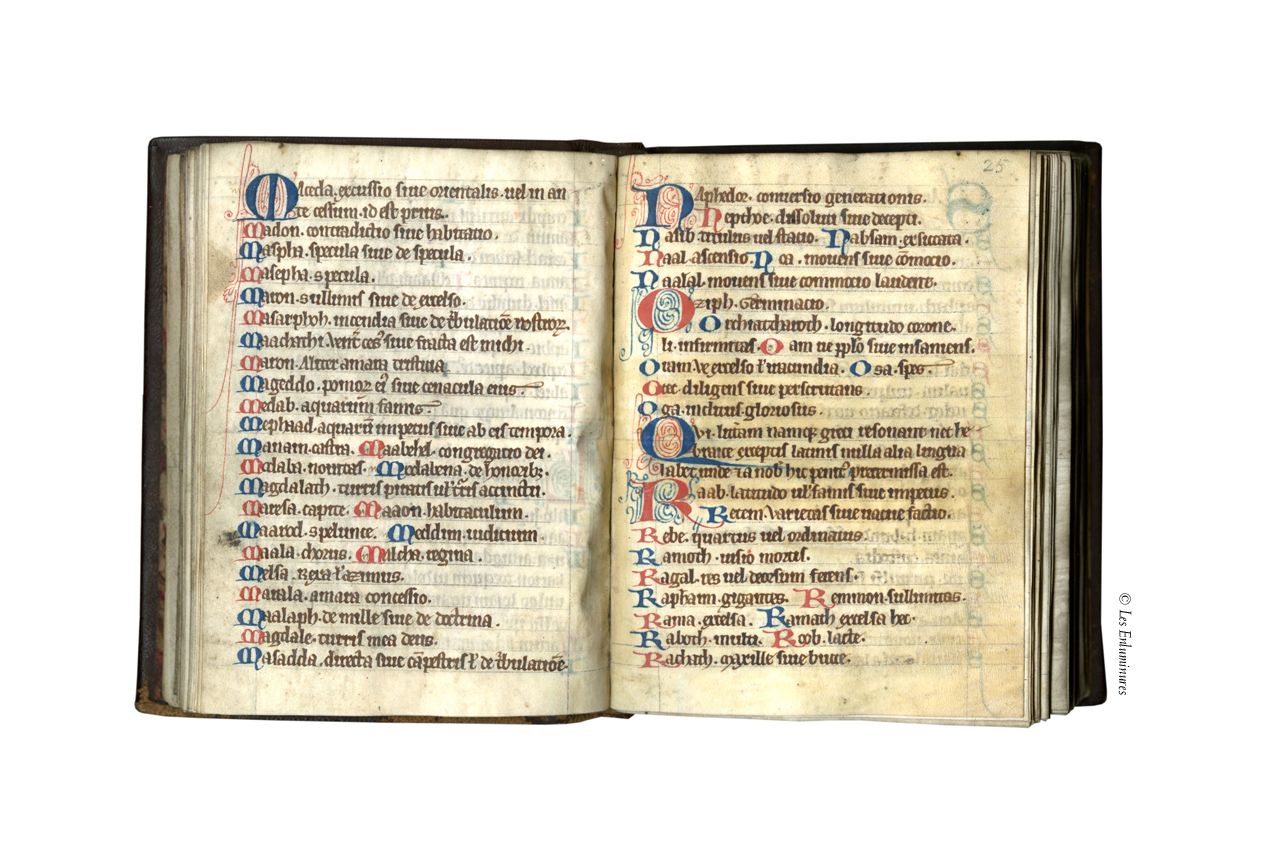 Maceda. excussio siue orientalis. uel in an
te cessum. id est prius.
Madon. contradictio siue habitatio.
Maspha. specula siue de specula.
Masepha. specula.
Maron. sullimis siue de excelso.
Masarphoh. incendia siue de tbulatioe nostror.
Maachathi. siue fracta est michi.
Maron. amara tristitia
Mageddo. pomor siue cenacula eius.
Medab. aquarum famis.
Mephaad. aquarum impetus siue ab eis tempora.
Manaim. castra. Maabehel. congregatio dei.
Medaba. nouitas. Medalena. de honorib;
Magdalath. turris
Maresa. capite. Maaon. habitaculum.
Maarod. spelunce. Meddim. iudicium
Maala. chorus. Milcha. regina.
Melsa.
Marala. amara concessio.
Maalaph. de mille siue de doctrina.
Magdale. turris mea deus.
Masadda. directa siue cāpestris ł de tbulatioe.
25
Naphedor. conuersio generationis.
Nepthoe. dissolui siue decepti.
Nasib. titulus uel statio. Nabsam. exsiccata.
Naal. ascensio. Noa. mouens siue cōmotio.
Naalal. mouens siue commotio laudere.
Oziph. Germinatio.
Orchiatharoth. longitudo corone.
li. infirmitas. O am ne pplo siue insaniens.
Oram. ve excelso ł iracundia. Osa. spes.
Orec. diligens siue perscrutans.
Oga. inclitus. gloriosus.
Qui. litam namq; greci resonant nec he
braice exceptis latinis nulla alia lingua
habet. unde a nob hic penit' pretermissa est.
Raab. latitudo ul' famis siue impetus.
Recem. varietas siue factio.
Rebe. quartus uel ordinatus.
Ramoth. uisio mortis.
Ragal. res uel deorsum ferens.
Raphaim. gigantes. Remmon. sullimitas.
Rama. excelsa. Ramath excelsa hec.
Raboth. multi. Roob. late.
Rachath. maxille siue bucce.
© Les Enluminures